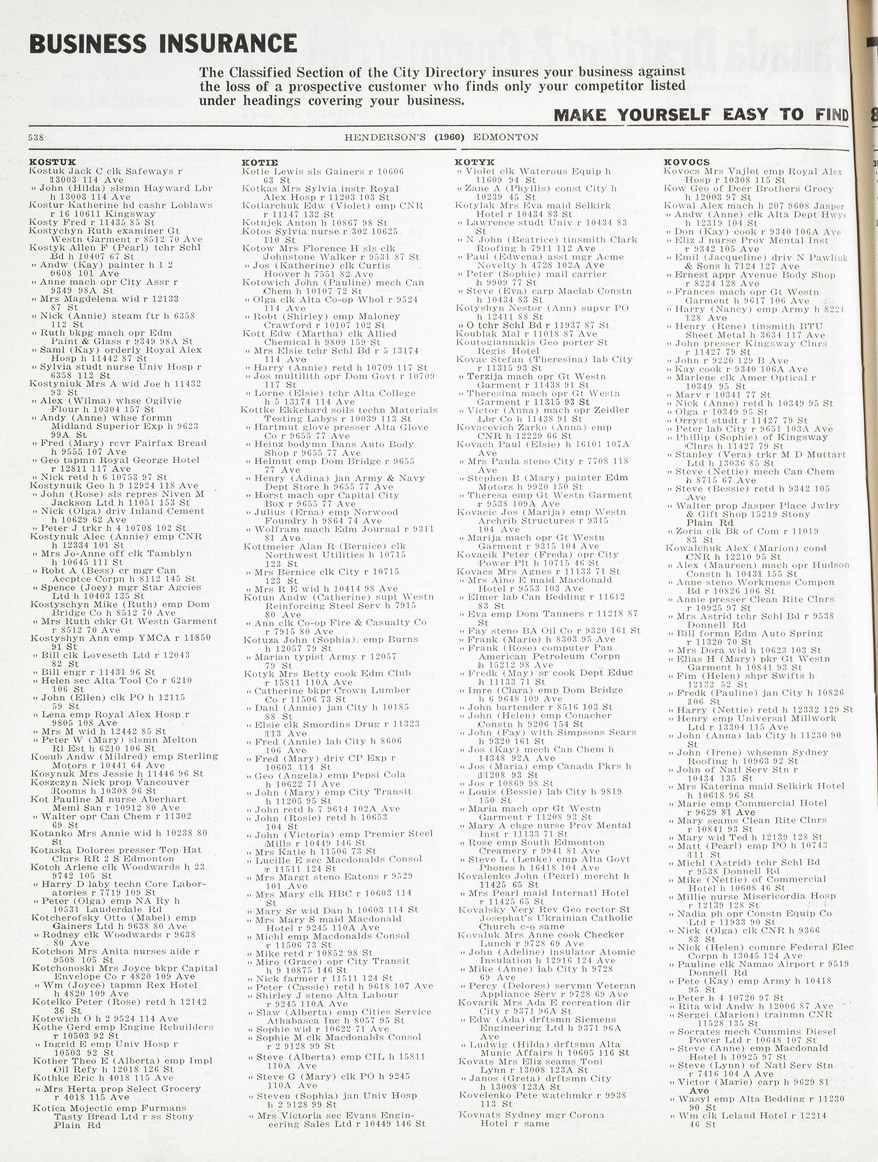 BUSINESS INSURANCE
The Classified Section of the City Directory insures your business against
the loss of a prospective customer who finds only your competitor listed
under headings covering your business.
MAKE YOURSELF EASY TO FIND
538
HENDERSON'S (1960) EDMONTON
KOSTUK
Kostuk Jack C clk Safeways r
13003 114 Ave
" John (Hilda) slsmn Hayward Lbr
h 13003 114 Ave
Kostur Katherine hd cashr Loblaws
r 16 10611 Kingsway
Kosty Fred r 11435 85 St
Kostychyn Ruth examiner Gt
Westn Garment r 8512 70 Ave
Kostyk Allen F (Pearl) tchr Schl
Bd h 10407 67 St
" Andw (Kay) painter h 1 2
9608 101 Ave
" Anne mach opr City Assr r
9349 98A St
" Mrs Magdelena wid r 12133
87 St
" Nick (Annie) steam ftr h 6358
112 St
" Ruth bkpg mach opr Edm
Paint & Glass r 9349 98A St
" Saml (Kay) orderly Royal Alex
Hosp h 11442 87 St
" Sylvia studt nurse Univ Hosp r
6358 112 St
Kostyniuk Mrs A wid Joe h 11432
93 St
" Alex (Wilma) whse Ogilvie
Flour h 10304 157 St
" Andy (Anne) whse formn
Midland Superior Exp h 9623
99A St
" Fred (Mary) rcvr Fairfax Bread
h 9555 107 Ave
" Geo tapmn Royal George Hotel
r 12811 117 Ave
" Nick retd h 6 10753 97 St
Kostynuik Geo h 9 12924 118 Ave
" John (Rose) sls repres Niven M
Jackson Ltd h 11051 153 St
" Nick (Olga) driv Inland Cement
h 10629 62 Ave
" Peter J trkr h 4 10708 102 St
Kostynuk Alec (Annie) emp CNR
h 12334 101 St
" Mrs Jo-Anne off clk Tamblyn
h 10645 111 St
" Robt A (Bess) cr mgr Can
Accptce Corpn h 8112 145 St
" Spence (Joey) mgr Star Agcies
Ltd h 10403 135 St
Kostyschyn Mike (Ruth) emp Dom
Bridge Co h 8512 70 Ave
" Mrs Ruth chkr Gt Westn Garment
r 8512 70 Ave
Kostyshyn Ann emp YMCA r 11850
91 St
" Bill clk Loveseth Ltd r 12043
82 St
" Bill engr r 11431 96 St
" Helen sec Alta Tool Co r 6210
106 St
" John (Ellen) clk PO h 12115
59 St
" Lena emp Royal Alex Hosp r
9805 108 Ave
" Mrs M wid h 12442 85 St
" Peter W (Mary) slsmn Melton
Rl Est h 6210 106 St
Kosub Andw (Mildred) emp Sterling
Motors r 10441 64 Ave
Kosynuk Mrs Jessie h 11446 96 St
Koszeczyn Nick prop Vancouver
Rooms h 10308 96 St
Kot Pauline M nurse Aberhart
Meml San r 10912 80 Ave
" Walter opr Can Chem r 11302
69 St
Kotanko Mrs Annie wid h 10238 80
St
Kotaska Dolores presser Top Hat
Clnrs RR 2 S Edmonton
Kotch Arlene clk Woodwards h 23
9742 105 St
" Harry D laby techn Core Labor-
atories r 7719 109 St
" Peter (Olga) emp NA Ry h
10531 Lauderdale Rd
Kotcherofsky Otto (Mabel) emp
Gainers Ltd h 9638 80 Ave
" Rodney clk Woodwards r 9638
80 Ave
Kotchon Mrs Anita nurses aide r
9508 105 St
Kotchonoski Mrs Joyce bkpr Capital
Envelope Co r 4820 109 Ave
" Wm (Joyce) tapmn Rex Hotel
h 4820 109 Ave
Kotelko Peter (Rose) retd h 12142
36 St
Kotewich O h 2 9524 114 Ave
Kothe Gerd emp Engine Rebuilders
r 10503 92 St
" Ingrid E emp Univ Hosp r
10503 92 St
Kother Theo E (Alberta) emp Impl
Oil Refy h 12018 126 St
Kothke Eric h 4018 115 Ave
" Mrs Herta prop Select Grocery
r 4018 115 Ave
Kotica Mojectic emp Furmans
Tasty Bread Ltd r ss Stony
Plain Rd
KOTIE
Kotie Lewis sls Gainers r 10606
63 St
Kotkas Mrs Sylvia instr Royal
Alex Hosp r 11203 103 St
Kotlarchuk Edw (Violet) emp CNR
r 11147 132 St
Kotnjek Anton h 10867 98 St
Kotos Sylvia nurse r 302 10625
110 St
Kotow Mrs Florence H sls clk
Johnstone Walker r 9531 87 St
" Jos (Katherine) clk Curtis
Hoover h 7551 82 Ave
Kotowich John (Pauline) mech Can
Chem h 10107 72 St
" Olga clk Alta Co-op Whol r 9524
114 Ave
" Robt (Shirley) emp Maloney
Crawford r 10107 102 St
Kott Edw (Martha) clk Allied
Chemical h 9809 159 St
" Mrs Elsie tchr Schl Bd r 5 13174
114 Ave
" Harry (Annie) retd h 10709 117 St
" Jos multilith opr Dom Govt r 10709
117 St
" Lorne (Elsie) tchr Alta College
h 5 13174 114 Ave
Kottke Ekkehard soils techn Materials
Testing Labys r 10039 113 St
" Hartmut glove presser Alta Glove
Co r 9655 77 Ave
" Heinz bodymn Dans Auto Body
Shop r 9655 77 Ave
" Helmut emp Dom Bridge r 9655
77 Ave
" Henry (Adina) jan Army & Navy
Dept Store h 9655 77 Ave
" Horst mach opr Capital City
Box r 9655 77 Ave
" Julius (Erna) emp Norwood
Foundry h 9864 74 Ave
" Wolfram mach Edm Journal r 9311
81 Ave
Kottmeier Alan R (Bernice) clk
Northwest Utilities h 10715
123 St
" Mrs Bernice clk City r 10715
123 St
" Mrs R E wid h 10414 98 Ave
Kotun Andw (Catherine) supt Westn
Reinforcing Steel Serv h 7915
80 Ave
" Ann clk Co-op Fire & Casualty Co
r 7915 80 Ave
Kotuza John (Sophia) emp Burns
h 12057 79 St
" Marian typist Army r 12057
79 St
Kotyk Mrs Betty cook Edm Club
r 15811 110A Ave
" Catherine bkpr Crown Lumber
Co r 11506 73 St
" Danl (Annie) jan City h 10185
88 St
" Elsie clk Smordins Drug r 11323
113 Ave
" Fred (Annie) lab City h 8606
106 Ave
" Fred (Mary) driv CP Exp r
10603 114 St
" Geo (Angela) emp Pepsi Cola
h 10622 71 Ave
" John (Mary) emp City Transit
h 11205 95 St
" John retd h 7 9614 102A Ave
" John (Rosie) retd h 10653
104 St
" John (Victoria) emp Premier Steel
Mills r 10449 146 St
" Mrs Katie h 11506 73 St
" Lucille E sec Macdonalds Consol
r 11511 124 St
" Mrs Margt steno Eatons r 9529
101 Ave
" Mrs Mary clk HBC r 10603 114
St
" Mary Sr wid Dan h 10603 114 St
" Mrs Mary S maid Macdonald
Hotel r 9245 110A Ave
" Michl emp Macdonalds Consol
r 11506 73 St
" Mike retd r 10852 98 St
" Miro (Grace) opr City Transit
h 9 10875 146 St
" Nick farmer r 11511 124 St
" Peter (Cassie) retd h 9618 107 Ave
" Shirley J steno Alta Labour
r 9245 110A Ave
" Slaw (Alberta) emp Cities Service
Athabasca Inc h 8057 95 St
" Sophie wid r 10622 71 Ave
" Sophie M clk Macdonalds Consol
r 2 9128 99 St
" Steve (Alberta) emp CIL h 15811
110A Ave
" Steve G (Mary) clk PO h 9245
110A Ave
" Steven (Sophia) jan Univ Hosp
h 2 9128 99 St
" Mrs Victoria sec Evans Engin-
eering Sales Ltd r 10449 146 St
KOTYK
" Violet clk Waterous Equip h
11609 94 St
" Zane A (Phyllis) const City h
10239 45 St
Kotylak Mrs Eva maid Selkirk
Hotel r 10434 83 St
" Lawrence studt Univ r 10434 83
St
" N John (Beatrice) tinsmith Clark
Roofing h 7911 112 Ave
" Paul (Edwena) asst mgr Acme
Novelty h 4728 102A Ave
" Peter (Sophie) mail carrier
h 9909 77 St
" Steve (Eva) carp Maclab Constn
h 10434 83 St
Kotyshyn Nestor (Ann) supvr PO
h 12411 88 St
" O tchr Schl Bd r 11937 87 St
Koublak Mal r 11018 87 Ave
Koutogiannakis Geo porter St
Regis Hotel
Kovac Stefan (Theresina) lab City
r 11315 93 St
" Terzija mach opr Gt Westn
Garment r 11438 91 St
" Theresina mach opr Gt Westn
Garment r 11315 93 St
" Victor (Anna) mach opr Zeidler
Lbr Co h 11438 91 St
Kovacevich Zarko (Anna) emp
CNR h 12229 66 St
Kovach Paul (Elsie) h 16101 107A
Ave
" Mrs Paula steno City r 7708 118
Ave
" Stephen B (Mary) painter Edm
Motors h 9920 150 St
" Theresa emp Gt Westn Garment
r 9538 109A Ave
Kovacic Jos (Marija) emp Westn
Archrib Structures r 9315
104 Ave
" Marija mach opr Gt Westn
Garment r 9315 104 Ave
Kovacik Peter (Freda) opr City
Power Plt h 10715 46 St
Kovacs Mrs Agnes r 11133 71 St
" Mrs Aino E maid Macdonald
Hotel r 9553 103 Ave
" Elmer lab Can Bedding r 11612
83 St
" Eva emp Dom Tanners r 11218 87
St
" Fay steno BA Oil Co r 9320 161 St
" Frank (Marie) h 8303 95 Ave
" Frank (Rose) computer Pan
American Petroleum Corpn
h 15212 98 Ave
" Fredk (May) sr cook Dept Educ
h 11133 71 St
" Imre (Clara) emp Dom Bridge
h 6 9648 109 Ave
" John bartender r 8516 103 St
" John (Helen) emp Conacher
Constn h 9206 154 St
" John (Fay) with Simpsons Sears
h 9320 161 St
" Jos (Kay) mech Can Chem h
14348 92A Ave
" Jos (Maria) emp Canada Pkrs h
11208 93 St
" Jos r 10869 98 St
" Louis (Bessie) lab City h 9819
150 St
" Maria mach opr Gt Westn
Garment r 11208 93 St
" Mary A chge nurse Prov Mental
Inst r 11133 71 St
" Rose emp South Edmonton
Creamery r 9941 81 Ave
" Steve L (Lenke) emp Alta Govt
Phones h 16418 104 Ave
Kovalenko John (Pearl) mercht h
11425 65 St
" Mrs Pearl maid Internatl Hotel
r 11425 65 St
Kovalsky Very Rev Geo rector St
Josephat's Ukrainian Catholic
Church c-o same
Kovaluk Mrs Anne cook Checker
Lunch r 9728 69 Ave
" John (Adeline) insulator Atomic
Insulation h 12916 124 Ave
" Mike (Anne) lab City h 9728
69 Ave
" Percy (Delores) servmn Veteran
Appliance Serv r 9728 69 Ave
Kovarik Mrs Ada E recreation dir
City r 9371 96A St
" Edw (Ada) drftsmn Siemens
Engineering Ltd h 9371 96A
Ave
" Ludwig (Hilda) drftsmn Alta
Munic Affairs h 10605 116 St
Kovats Mrs Eliz seams Toni
Lynn r 13008 123A St
" Janos (Greta) drftsmn City
h 13008 123A St
Kovelenko Pete watchmkr r 9938
113 St
Kovnats Sydney mgr Corona
Hotel r same
KOVOCS
Kovocs Mrs Vajlet emp Royal Alex
Hosp r 10308 115 St
Kow Geo of Deer Brothers Grocy
h 12003 97 St
Kowal Alex mach h 207 9608 Jasper
" Andw (Anne) clk Alta Dept Hwys
h 12319 104 St
" Don (Kay) cook r 9340 106A Ave
" Eliz J nurse Prov Mental Inst
r 9342 105 Ave
" Emil (Jacqueline) driv N Pawliuk
& Sons h 7124 127 Ave
" Ernest appr Avenue Body Shop
r 8224 128 Ave
" Frances mach opr Gt Westn
Garment h 9617 106 Ave
" Harry (Nancy) emp Army h 8224
128 Ave
" Henry (Rene) tinsmith BTU
Sheet Metal h 3634 117 Ave
" John presser Kingsway Clnrs
r 11427 79 St
" John r 9220 129 B Ave
" Kay cook r 9340 106A Ave
" Marlene clk Amer Optical r
10349 95 St
" Marv r 10341 77 St
" Nick (Anne) retd h 10349 95 St
" Olga r 10349 95 St
" Orryst studt r 11427 79 St
" Peter lab City r 9651 103A Ave
" Phillip (Sophie) of Kingsway
Clnrs h 11427 79 St
" Stanley (Vera) trkr M D Muttart
Ltd h 13036 85 St
" Steve (Nettie) mech Can Chem
h 8715 67 Ave
" Steve (Bessie) retd h 9342 105
Ave
" Walter prop Jasper Place Jwlry
& Gift Shop 15219 Stony
Plain Rd
" Zoria clk Bk of Com r 11019
83 St
Kowalchuk Alex (Marion) cond
CNR h 12210 95 St
" Alex (Maureen) mach opr Hudson
Constn h 10431 155 St
" Anne steno Workmens Compen
Bd r 10826 106 St
" Annie presser Clean Rite Clnrs
r 10925 97 St
" Mrs Astrid tchr Schl Bd r 9538
Donnell Rd
" Bill formn Edm Auto Spring
r 11320 70 St
" Mrs Dora wid h 10623 103 St
" Elias H (Mary) pkr Gt Westn
Garment h 10841 93 St
" Fim (Helen) shpr Swifts h
12132 52 St
" Fredk (Pauline) jan City h 10826
106 St
" Harry (Nettie) retd r 12332 129 St
" Henry emp Universal Millwork
Ltd r 13304 115 Ave
" John (Anna) lab City h 11230 90
St
" John (Irene) whsemn Sydney
Roofing h 10963 92 St
" John of Natl Serv Stn r
10434 135 St
" Mrs Katerina maid Selkirk Hotel
h 10618 96 St
" Marie emp Commercial Hotel
r 9629 81 Ave
" Mary seams Clean Rite Clnrs
r 10841 93 St
" Mary wid Ted h 12139 128 St
" Matt (Pearl) emp PO h 10743
111 St
" Michl (Astrid) tchr Schl Bd
r 9538 Donnell Rd
" Mike (Nettie) of Commercial
Hotel h 10608 46 St
" Millie nurse Misericordia Hosp
r 12139 128 St
" Nadia ph opr Constn Equip Co
Ltd r 11933 90 St
" Nick (Olga) clk CNR h 9366
83 St
" Nick (Helen) comnre Federal Elec
Corpn h 13045 124 Ave
" Pauline clk Namao Airport r 9519
Donnell Rd
" Pete (Kay) emp Army h 10418
95 St
" Peter h 4 10720 97 St
" Rita wid Andw h 12006 87 Ave
" Sergei (Marion) trainmn CNR
11528 135 St
" Socrates mech Cummins Diesel
Power Ltd r 10648 107 St
" Steve (Anne) emp Macdonald
Hotel h 10925 97 St
" Steve (Lynn) of Natl Serv Stn
r 7416 104 A Ave
" Victor (Marie) carp h 9629 81
Ave
" Wasyl emp Alta Bedding r 11230
90 St
" Wm clk Leland Hotel r 12214
46 St